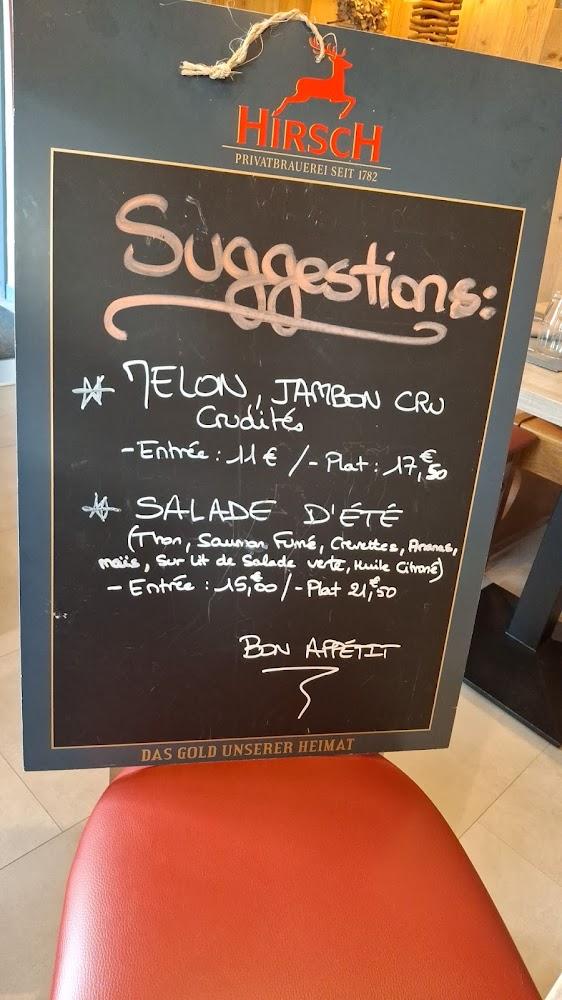 HIRSCH
PRIVATBRAUEREI SEIT 1782
Suggestions:
MELON, JAMBON CRU
Crudités
- Entrée : 11 € / - Plat : 17,€50
SALADE D'ÉTÉ
(Thon, Saumon Fumé, Crevettes, Ananas,
maïs, Sur Lit de Salade verte, Huile Citroné)
- Entrée : 15,€00 / - Plat 21,€50
BON APPÉTIT
DAS GOLD UNSERER HEIMAT